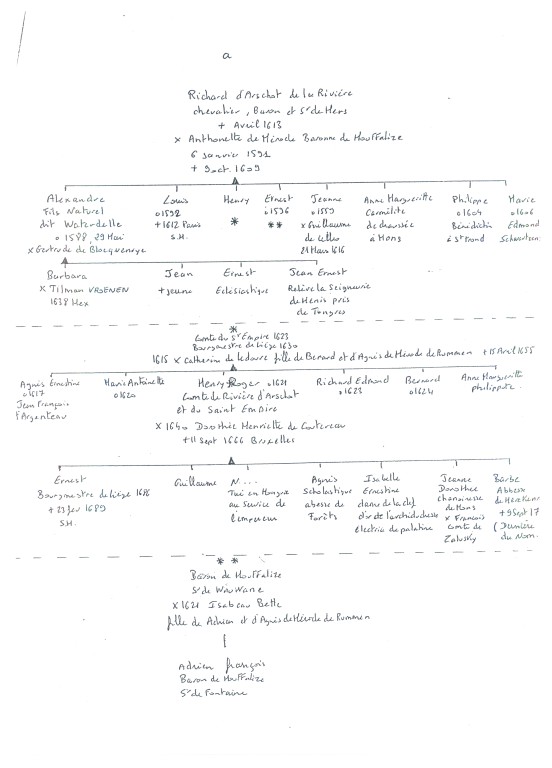 a
Richard d'Arschot de la Rivière
chevalier, Baron et Sr de Heers
+ Avril 1613
x Anthonette de Mérode Baronne de Houffalize
6 Janvier 1591
+ 9 oct. 1609
Alexandre
Fils Naturel
dit Waterdelle
o 1588, 29 Mai
x Gertrude de Blocqueneye
Louis
o 1592
+ 1612 Paris
S.H.
Henry
*
Ernest
o 1596
**
Jeanne
o 1559
x Guillaume
de Celles
21 Mars 1616
Anne Margueritte
Carmélite
de chaussée
à Mons
Philippe
o 1604
Bénédictin
à St Trond
Marie
o 1606
Edmond
Schwartzen.
Barbara
x Tilman VROENEN
1638 Hex
Jean
+ jeune
Ernest
Eclésiastique
Jean Ernest
Relève la Seigneurie
de Henis près
de Tongres
*
Comte du St Empire 1623
Bourgmestre de Liège 1630
1615 x Catherine de fille de Bernard et d'Agnès de Mérode de Rummen + 15 Avril 1655
Agnès Ernestine
o 1617
Jean François
d'Argenteau
Marie Antoinette
o 1620
Henry Roger o 1621
Comte de Rivière d'Arschot
et du Saint Empire
x 1640 Dorothée Henriette de
+ 11 Sept 1666 Bruxelles
Richard Edmond
o 1623
Bernard
o 1624
Anne Margueritte
philippote
Ernest
Bourgmestre de Liège 1686
+ 23 fev 1689
S.H.
Guillaume
N...
Tué en Hongrie
au service de
l'empereur
Agnès
Scholastique
abesse de
Forêts
Isabelle
Ernestine
dame de la clef
d'or de l'archiduchesse
electrice palatine
Jeanne
Dorothée
chanoinesse
de Mons
x François
Comte de
Zalusky
Barbe
Abbesse
de Herckenr.
+ 9 Sept 17
(Dernière
du Nom.
* *
Baron de Houffalize
Sr de
x 1621 Isabeau Bette
fille de Adrien et d'Agnès de Mérode de Rummen
Adrien françois
Baron de Houffalize
Sr de Fontaine